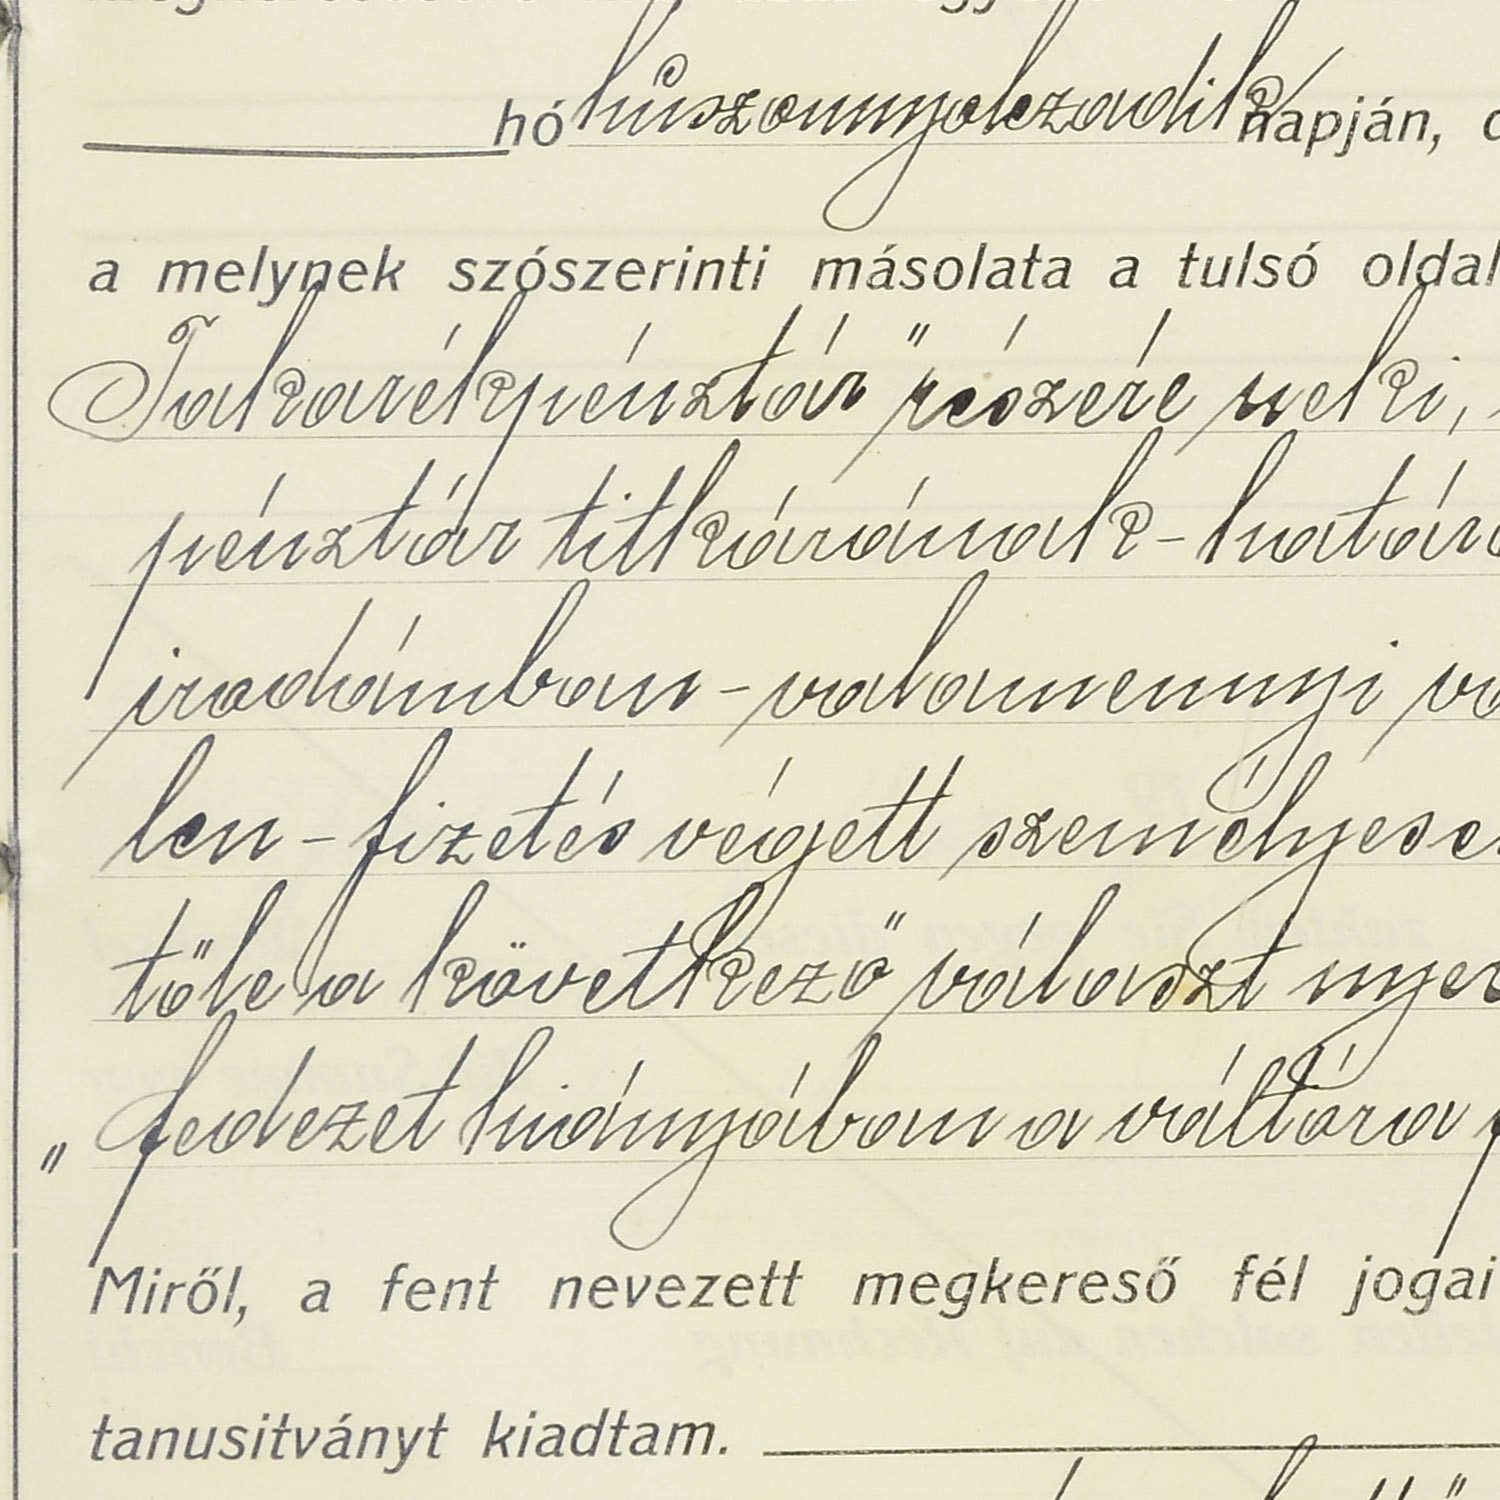 hó huszonnyolczadik napján,
a melynek szószerinti másolata a tulsó oldal
Takarékpénztár" részére neki,
pénztár titkárának - határo
irodámban - valamennyi vá
len - fizetés végett személyese
tőle a következő választ nyer
„fedezet hiányában a váltóra
Miről, a fent nevezett megkereső fél jogai
tanusitványt kiadtam.